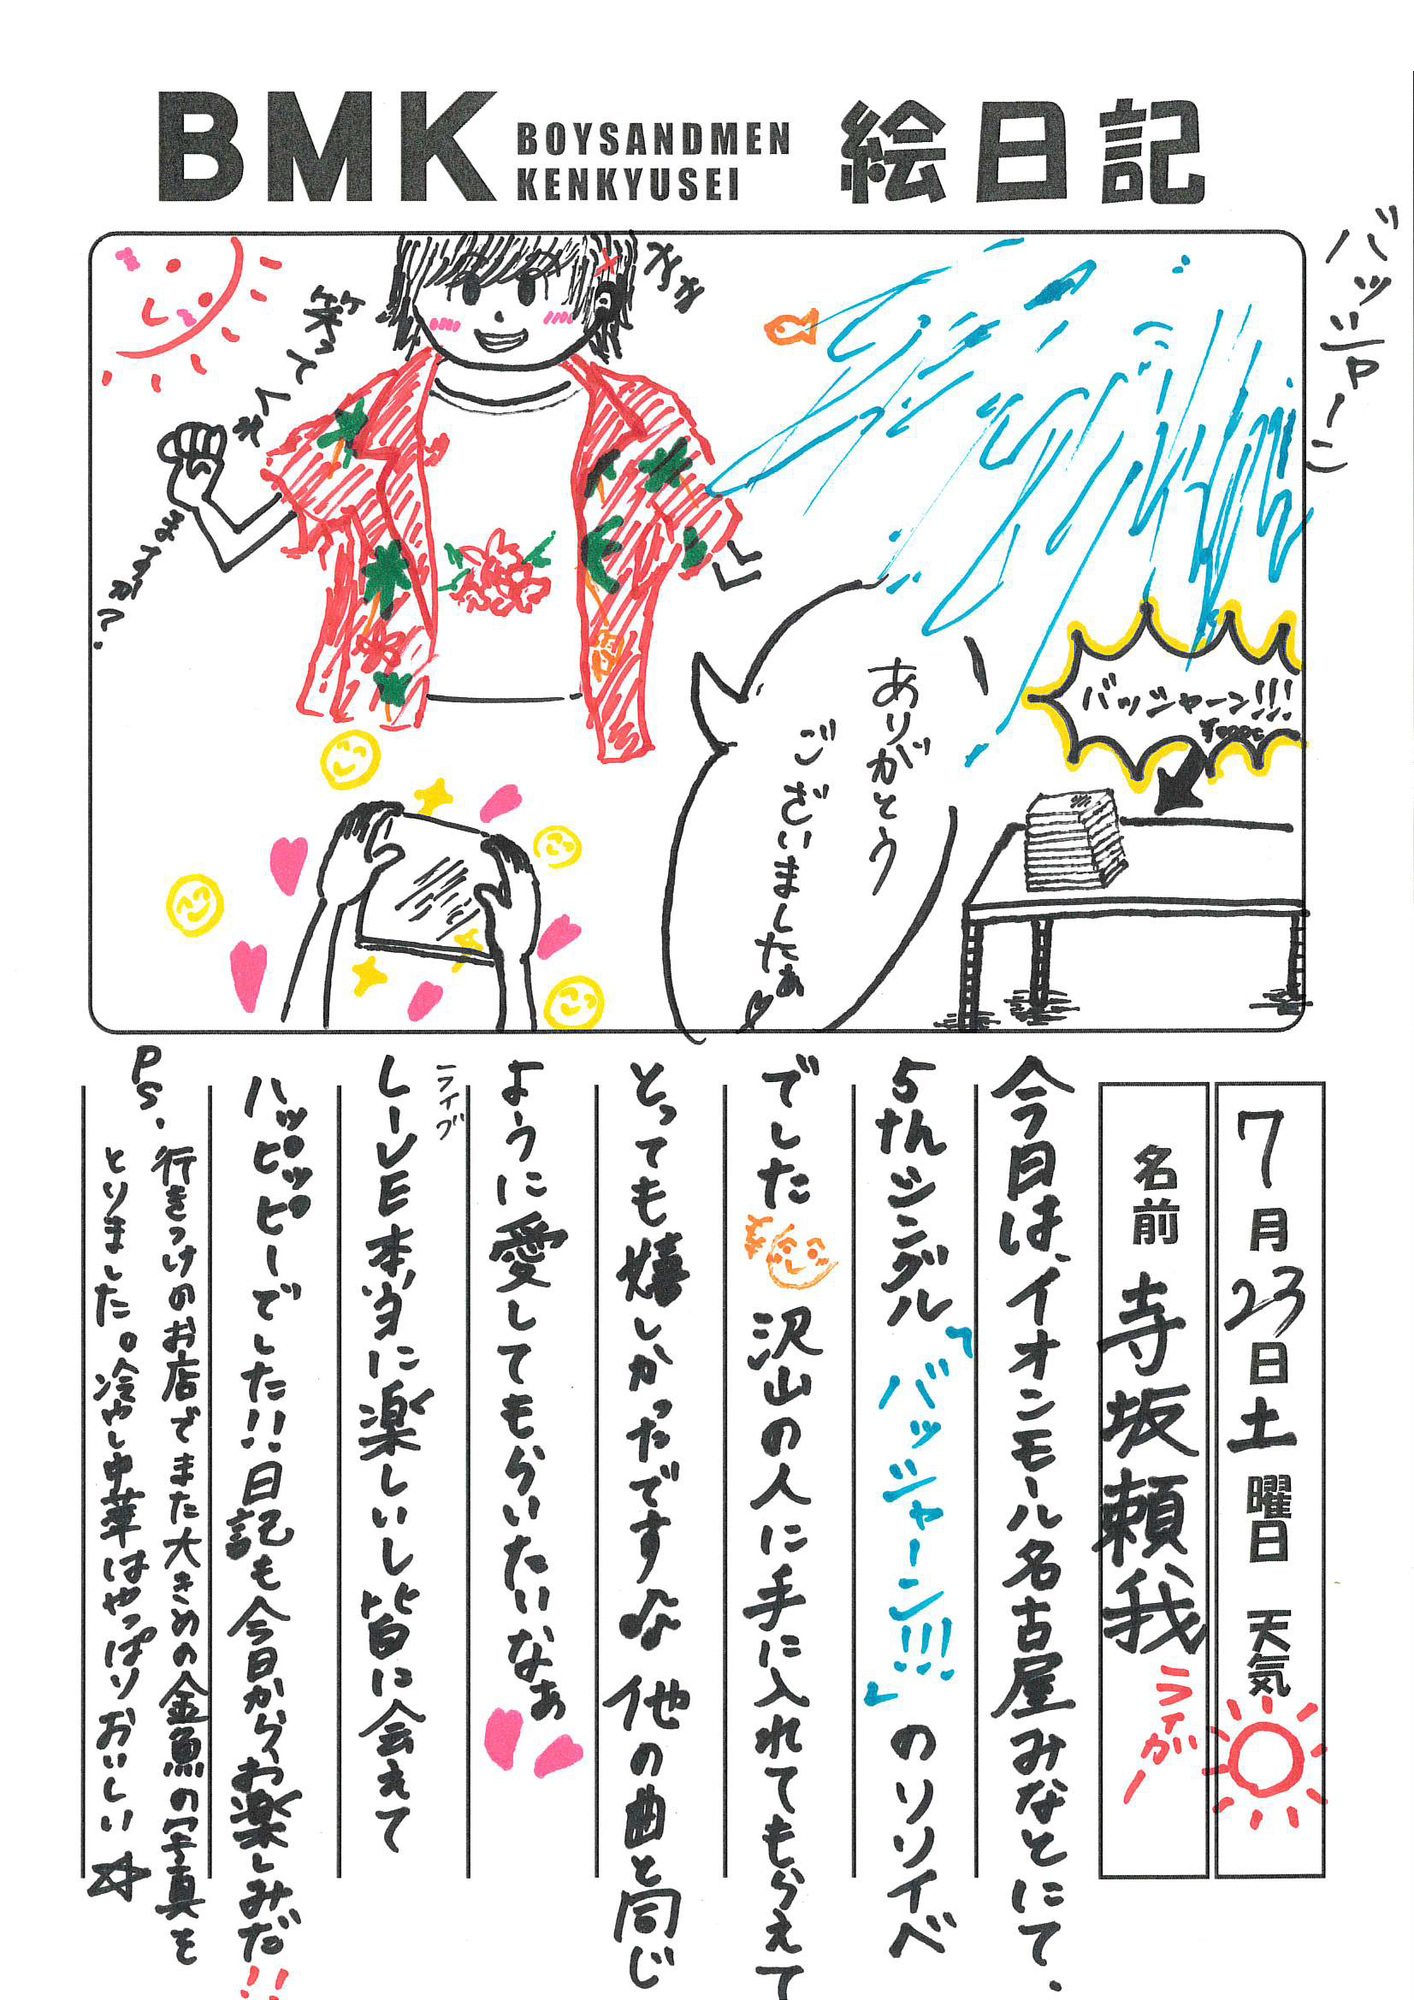 BMK BOYSANDMEN KENKYUSEI 絵日記
バッシャーン
笑ってくれ
キラキラ
ありがとう
ございましたぁ
バッシャーン!!!
7月23日土曜日 天気
名前 寺坂頼我
ライガー
今日は、イオンモール名古屋みなとにて、
5thシングル「バッシャーン!!!」のリリイベ
でした 沢山の人に手に入れてもらえて
とっても嬉しかったです♫ 他の曲と同じ
ように愛してもらいたいなぁ
ライブ
しーしE本当に楽しいいし皆に会えて
ハッピッピーでした!!日記も今日から、お楽しみだ!!
PS. 行きつけのお店でまた大きめの金魚の写真を
とりました。冷やし中華はやっぱりおいしい☆